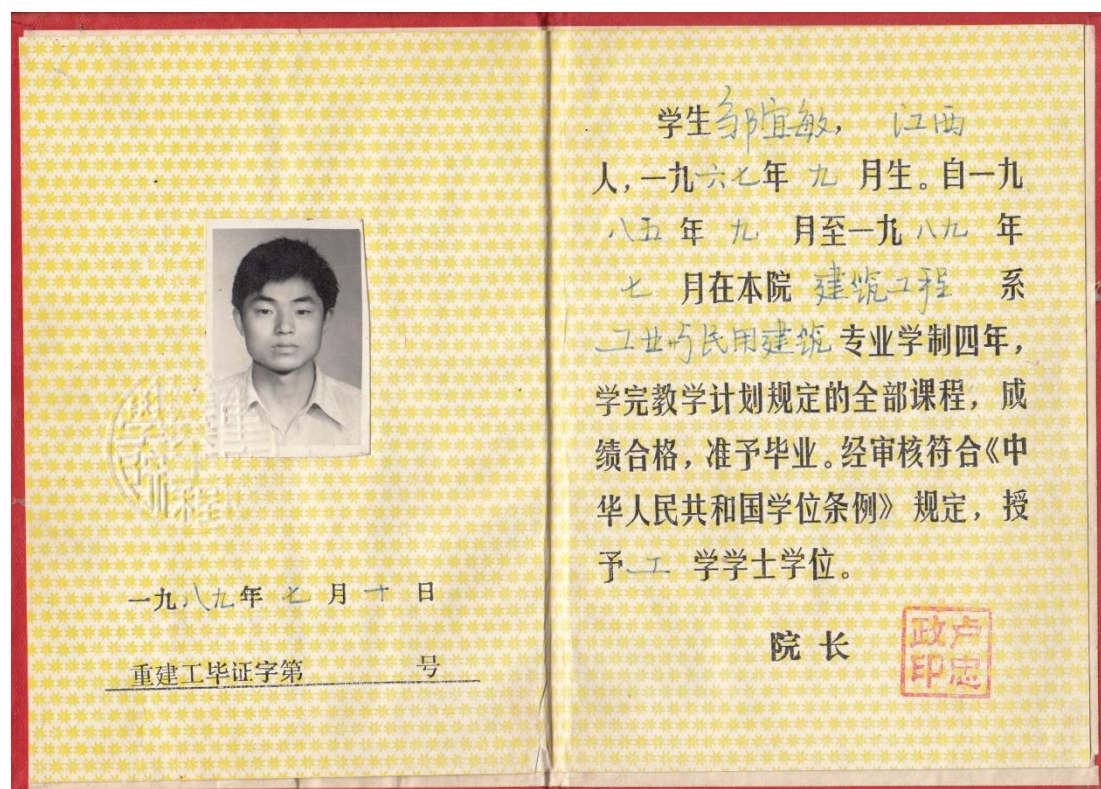 一九八九年 七 月 十 日
重建工毕证字第 号
学生邹宜敏, 江西
人,一九六七年 九 月生。自一九
八五 年 九 月至一九八九 年
七 月在本院 建筑工程 系
工业与民用建筑 专业学制四年,
学完教学计划规定的全部课程,成
绩合格,准予毕业。经审核符合《中
华人民共和国学位条例》规定,授
予 工 学学士学位。
院 长
卢忠政印